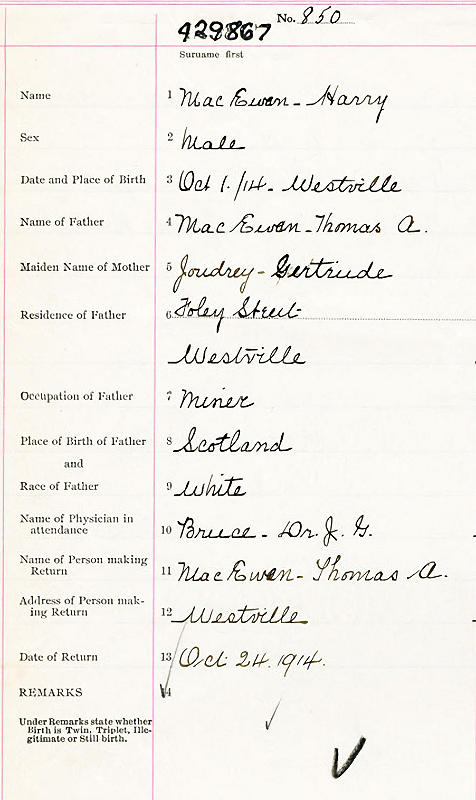 No. 850
429867
Surname first
Name 1 MacEwan - Harry
Sex 2 Male
Date and Place of Birth 3 Oct 1./14 - Westville
Name of Father 4 MacEwan - Thomas A.
Maiden Name of Mother 5 Joudrey - Gertrude
Residence of Father 6 Foley Street
Westville
Occupation of Father 7 Miner
Place of Birth of Father 8 Scotland
and
Race of Father 9 White
Name of Physician in
attendance 10 Bruce - Dr. J. G.
Name of Person making
Return 11 MacEwan - Thomas A.
Address of Person mak-
ing Return 12 Westville
Date of Return 13 Oct 24. 1914.
REMARKS 14
Under Remarks state whether
Birth is Twin, Triplet, Ille-
gitimate or Still birth.